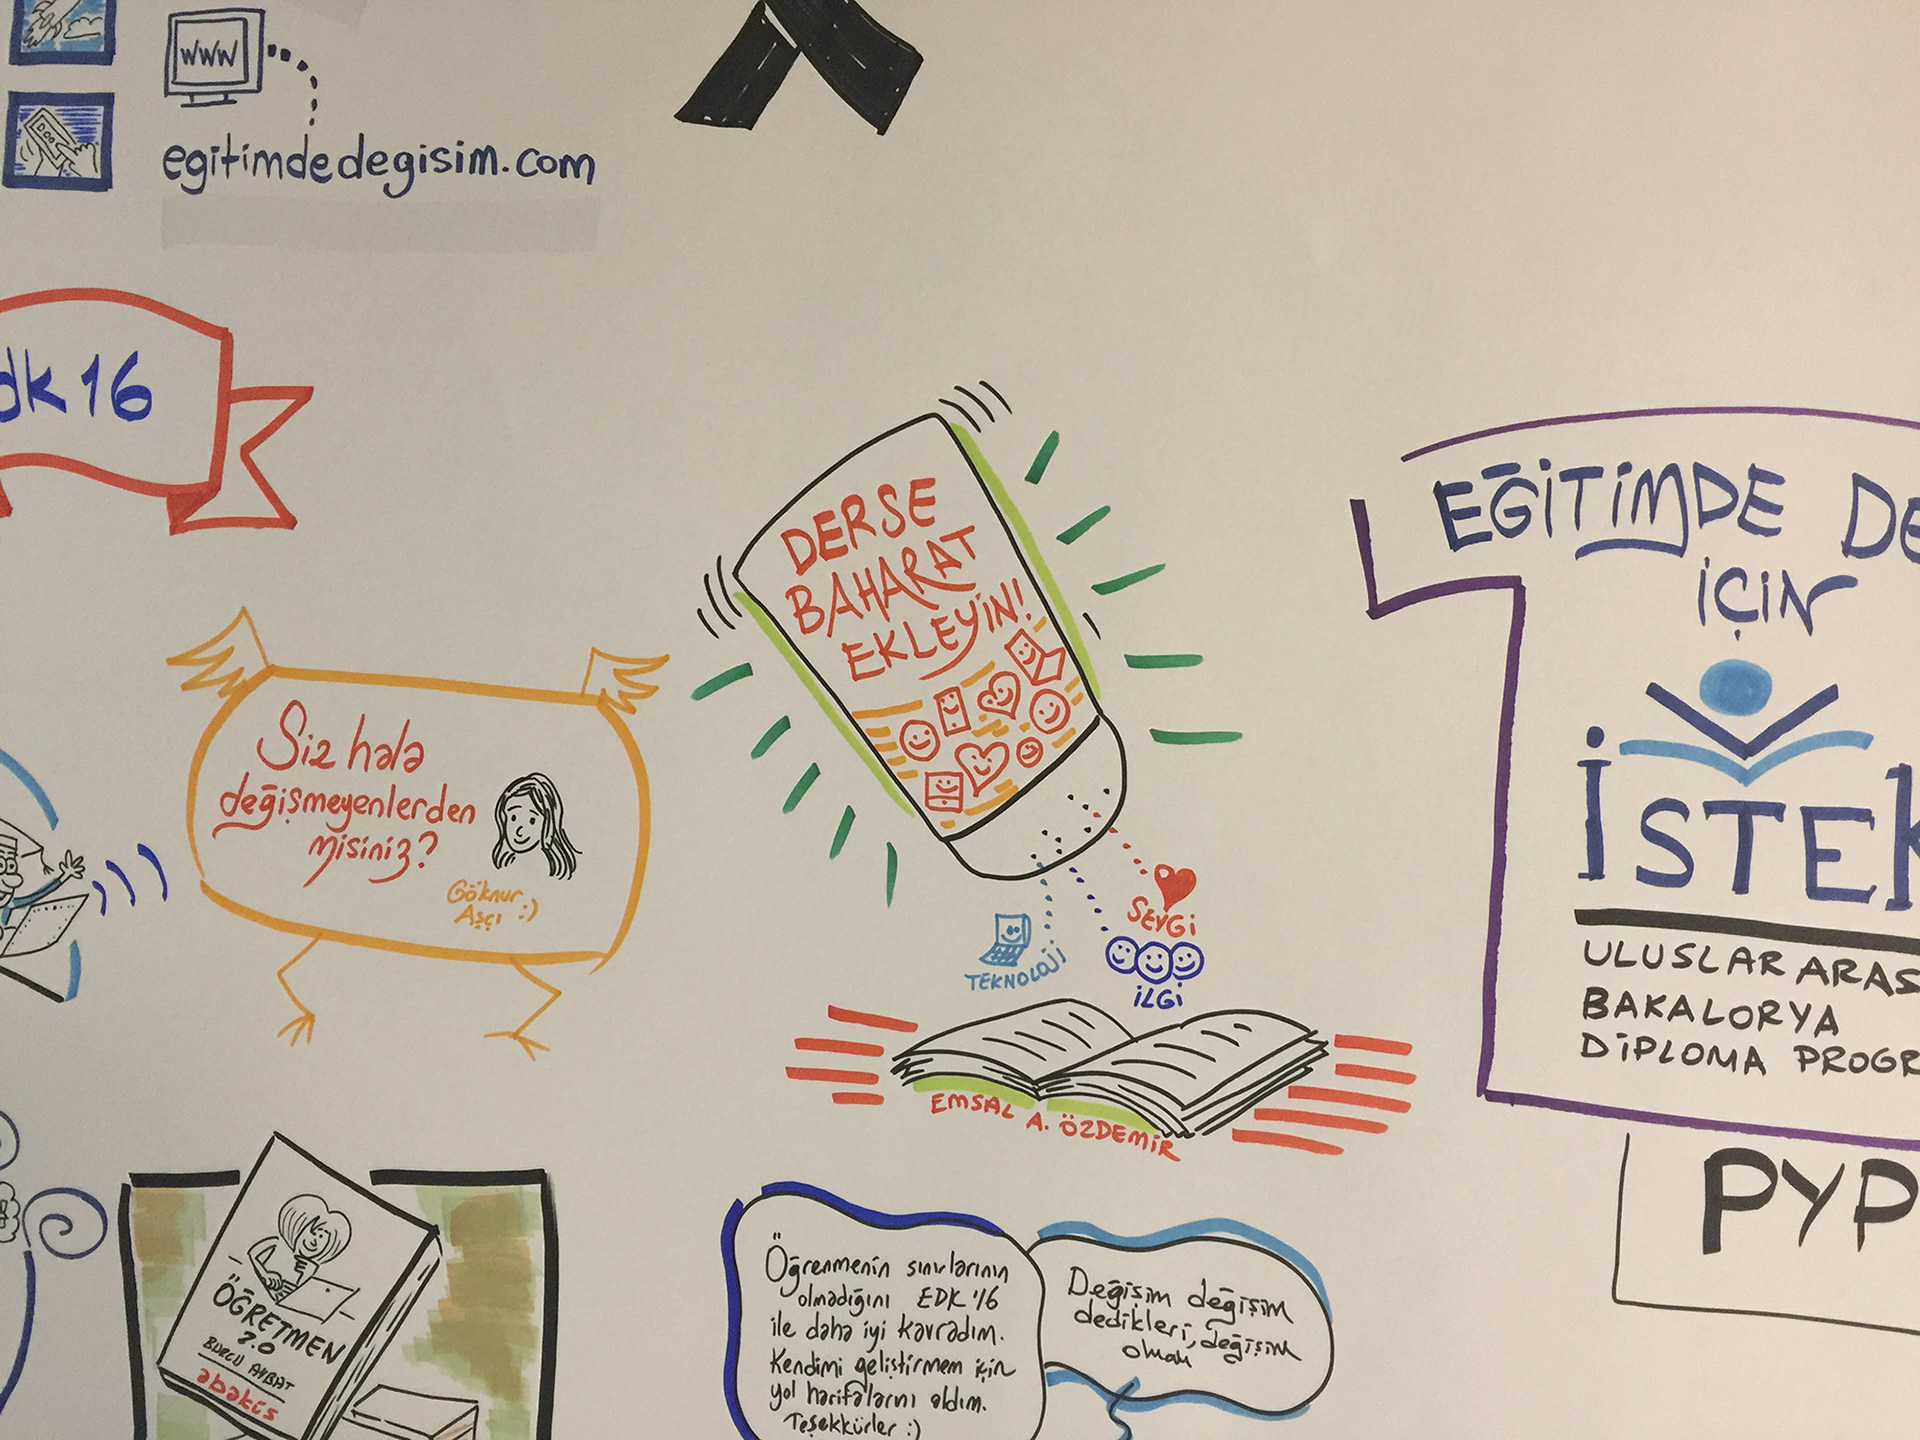 WWW
egitimdedegisim.com
dk16
DERSE
BAHARAT
EKLEYİN!
Siz hala
değişmeyenlerden
misiniz?
Göknur
Aşçı :)
SEVGİ
TEKNOLOJİ
İLGİ
EMSAL A. ÖZDEMİR
EĞİTİMDE DE
İÇİN
İSTEK
ULUSLARARAS
BAKALORYA
DİPLOMA PROGR
PYP
ÖĞRETMEN
2.0
BURCU AYBAT
abaküs
Öğrenmenin sınırlarının
olmadığını EDK'16
ile daha iyi kavradım.
Kendimi geliştirmem için
yol haritalarını aldım.
Teşekkürler :)
Değişim değişim
dedikleri, değişim